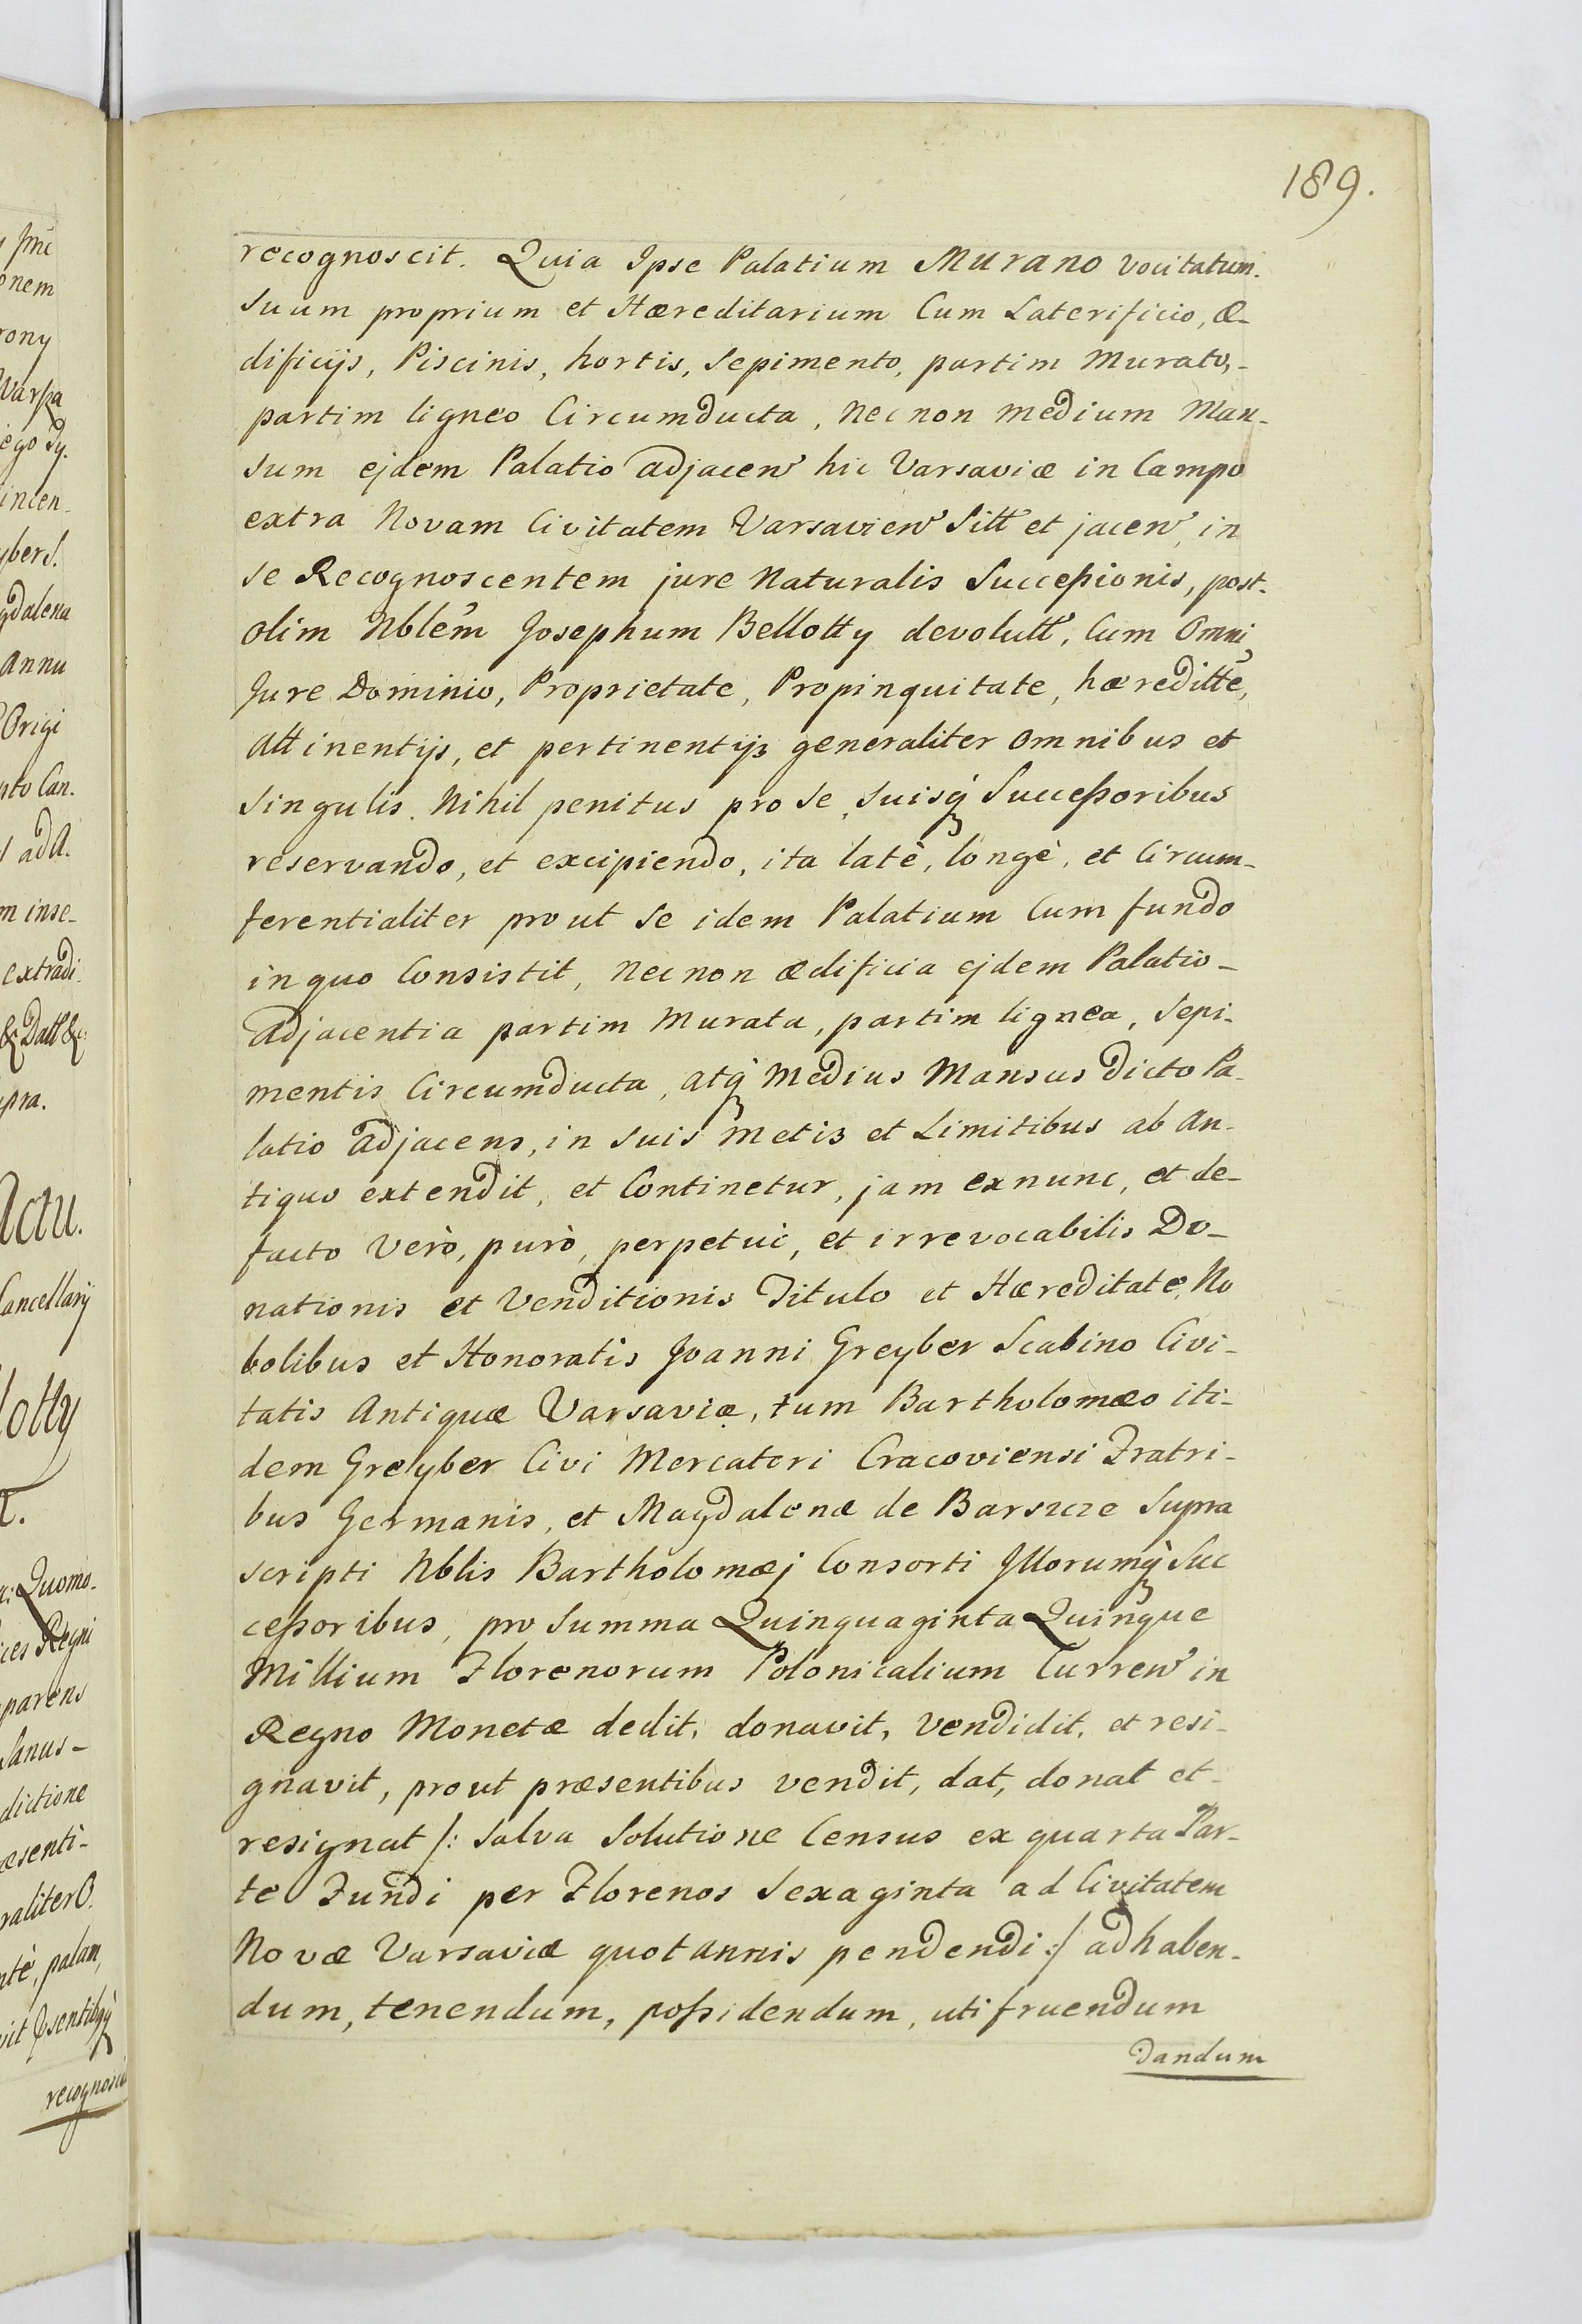 189.
recognoscit. Quia Ipse Palatium Murano vocitatum.
suum proprium et Hæreditarium Cum Laterificio, Æ-
dificijs, Piscinis, hortis, sepimento, partim Murato,-
partim ligneo Circumducta, Nec non medium Man-
sum ejdem Palatio adjacen̄ hic Varsaviæ in Campo
extra Novam Civitatem Varsavien̄ Sitt̄ et jacen̄, in
se Recognoscentem jure Naturalis Succeßionis, post-
olim Nblem̄ Josephum Bellotty devolutt̄, Cum Omni
Jure Dominio, Proprietate, Propinquitate, hæreditt̄e,
Attinentijs, et pertinentijs generaliter omnibus et
singulis. Nihil penitus pro se, suisq̀ Succeßoribus
reservando, et excipiendo, ita latè, longè, et Circum-
ferentialiter prout se idem Palatium Cum fundo
in quo Consistit, Nec non ædificia ejdem Palatio-
adjacentia partim Murata, partim lignea, sepi-
mentis Circumducta, atq̀ Medius Mansus dicto Pa-
latio adjacens, in suis metis et Limitibus ab An-
tiquo extendit, et Continetur, jam exnunc, et de-
facto verò, purò, perpetui, et irrevocabilis Do-
nationis et Venditionis Titulo et Hæreditate, No
bolibus et Honoratis Joanni Greyber Scabino Civi-
tatis Antiquæ Varsaviæ, tum Bartholomæo iti-
dem Greyber Civi Mercatori Cracoviensi Fratri-
bus Germanis, et Magdalenæ de Barszcze Supra
scripti Nblis Bartholomæj Consorti Jllorumq̀ Suc
ceßoribus, pro Summa Quinquaginta Quinque
Millium Florenorum Polonicalium Curren̄ in
Regno Monetæ dedit, donavit, Vendidit, et resi-
gnavit, prout præsentibus vendit, dat, donat et-
resignat /: salva Solutione Census ex quarta Par-
te Fundi per Florenos Sexaginta ad Civitatem
Novæ Varsaviæ quotannis pendendi :/ adhaben-
dum, tenendum, poßidendum, utifruendum
dandum
onem
rony
ego Dy.
incen-
gdalena
Annu
Origi
nto Can.
adA.
m inse-
extradi.
pra.
Actu.
Cancellarij
lotty
Quomo-
ices Regni
parens
Sanus-
dictione
æsenti-
raliter O.
ntè, palam,
recognoscit